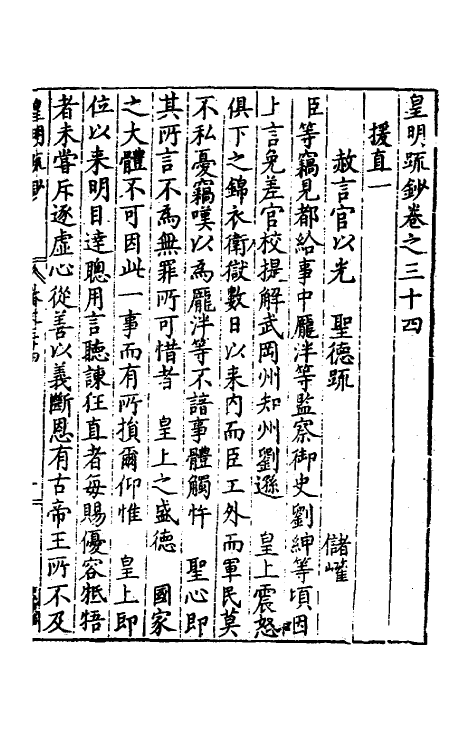 皇明疏鈔卷之三十四
援直一
赦言官以光 聖德疏 儲巏
臣等竊見都給事中龐泮等監察御史劉紳等頃因
上言免差官校提解武岡州知州劉遜 皇上震怒
俱下之錦衣衛獄數日以來內而臣工外而軍民莫
不私憂竊嘆以為龐泮等不諳事體觸忤 聖心即
其所言不為無罪所可惜者 皇上之盛德 國家
之大體不可因此一事而有所損爾仰惟 皇上即
位以來明目達聰用言聽諫任直者每賜優容牴牾
者未嘗斥逐虛心從善以義斷恩有古帝王所不及
皇明疏鈔 卷之三十四 一